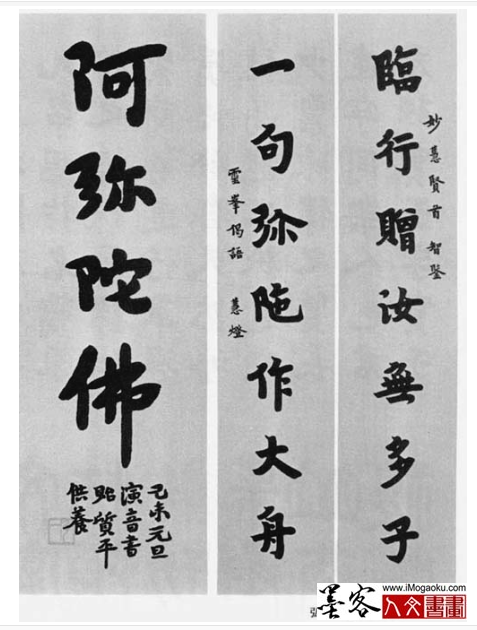 妙慧賢首 智鋻
臨行贈汝無多子
一句弥陁作大舟
靈峯偈語 慧燈
阿弥陀佛
己未元旦
演音書
貽質平
供養
墨客
www.iMogaoku.com
人文書畫